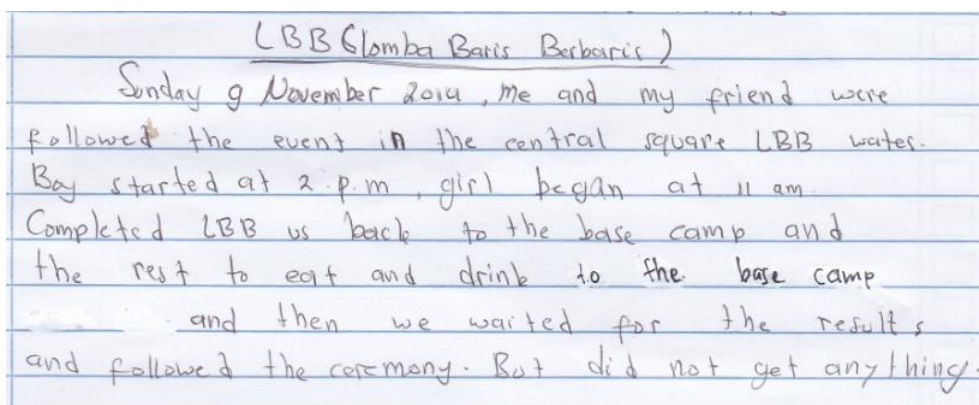 LBB (lomba Baris Berbaris)
Sunday 9 November 2014, me and my friend were
followed the event in the central square LBB water.
Boy started at 2 p.m, girl began at 11 am
Completed LBB us back to the base camp and
the rest to eat and drink to the base camp
and then we waited for the results
and followed the ceremony. But did not get anything.